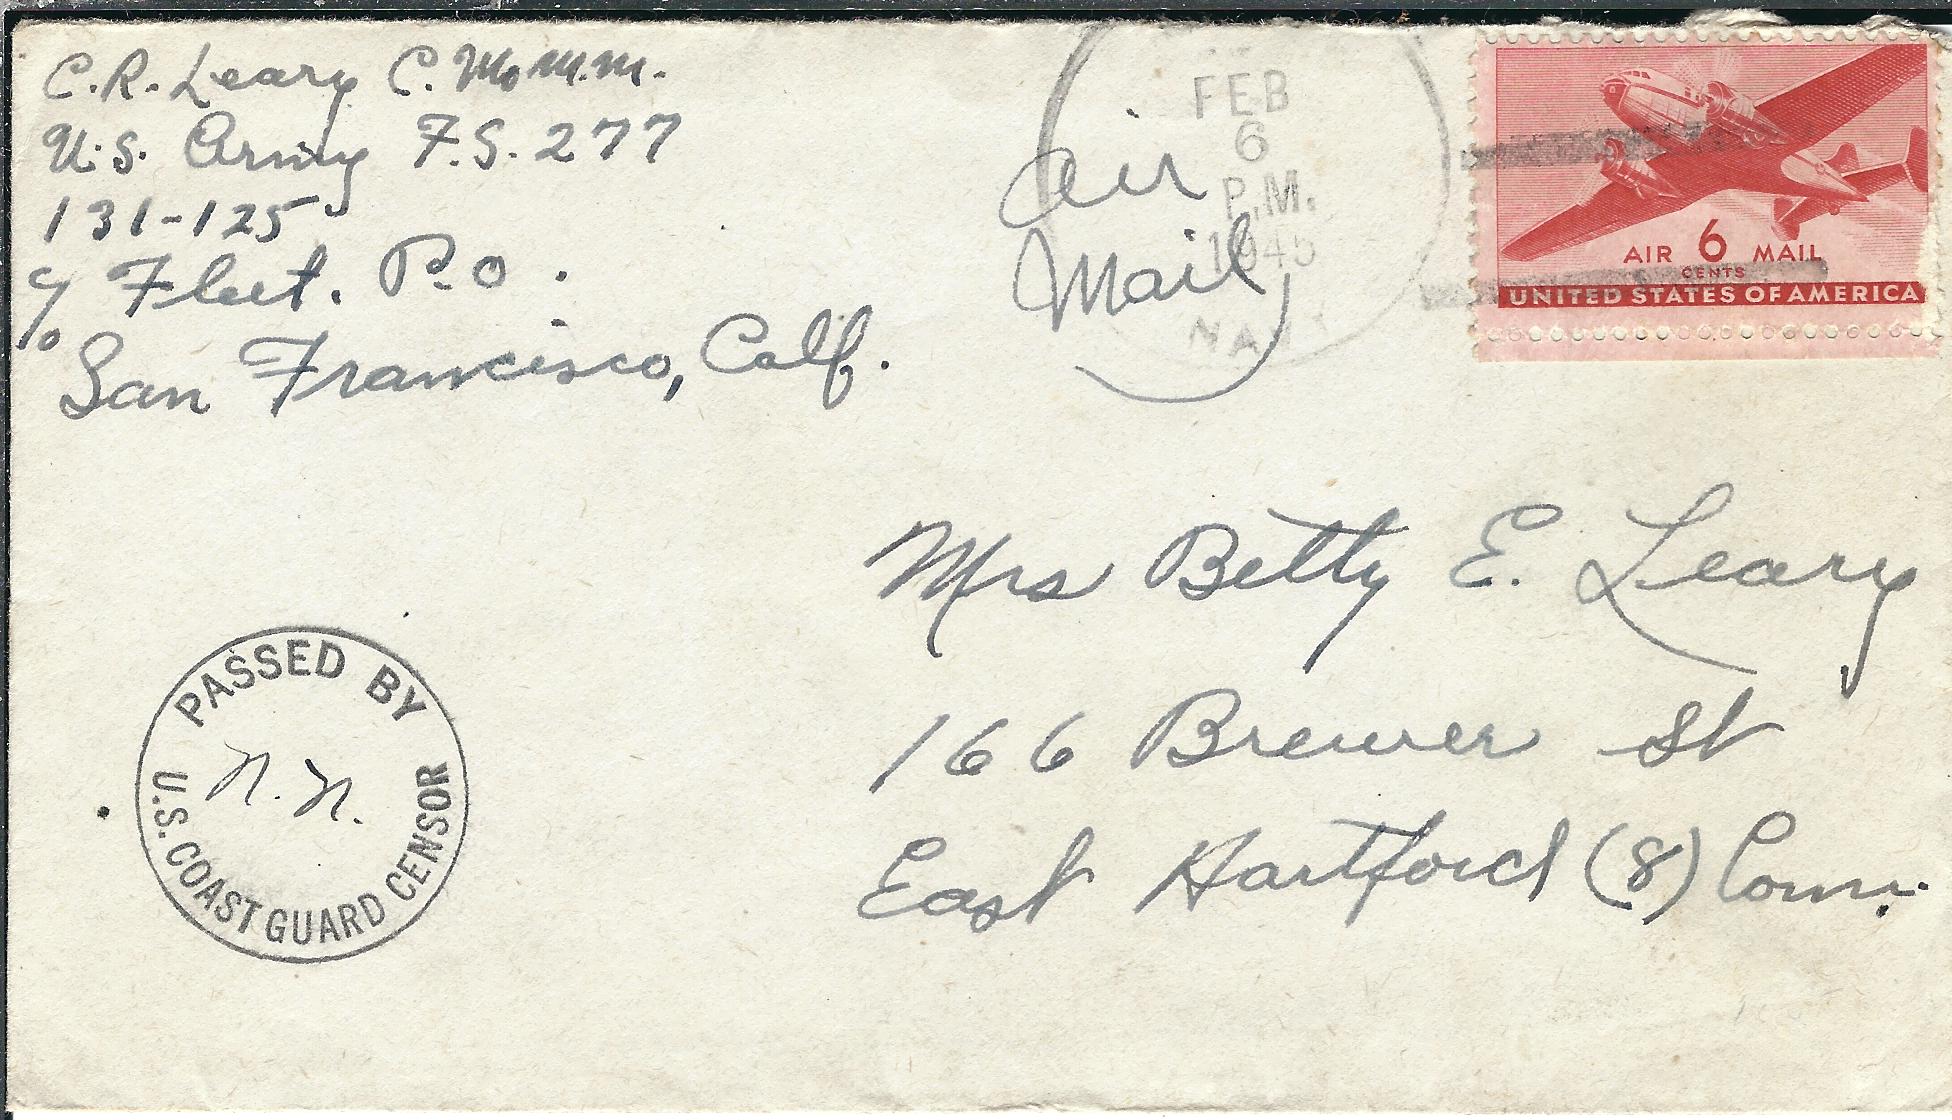 C.R. Leary C. Mo.M.M.
U.S. Army F.S. 277
131-125
c/o Fleet. P.O.
San Francisco, Calf.
Air
Mail
FEB
6
P.M.
1945
NAVY
AIR 6 MAIL
CENTS
UNITED STATES OF AMERICA
Mrs Betty E. Leary
166 Brewer St
East Hartford (8) Conn.
PASSED BY
N.N.
U.S. COAST GUARD CENSOR